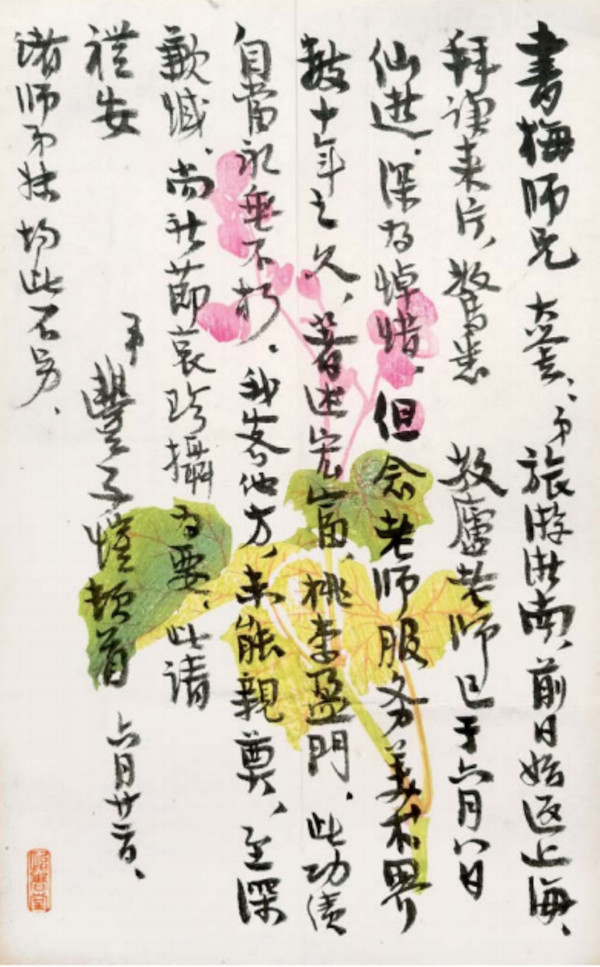 書梅师兄 大鉴、弟旅游浙南、前日始返上海、
拜讀来片、驚悉 敬廬老师已于六月八日
仙逝．深为悼惜．但念老师服务美术界
数十年之久、著述宏富、桃李盈門．此功绩
自当永垂不朽．我客他方，未能親奠、至深
歉憾、尚祈節哀珍攝为要．此请
禮安
弟 豐子愷頓首 六月廿二日、
诸师弟妹均此不另、